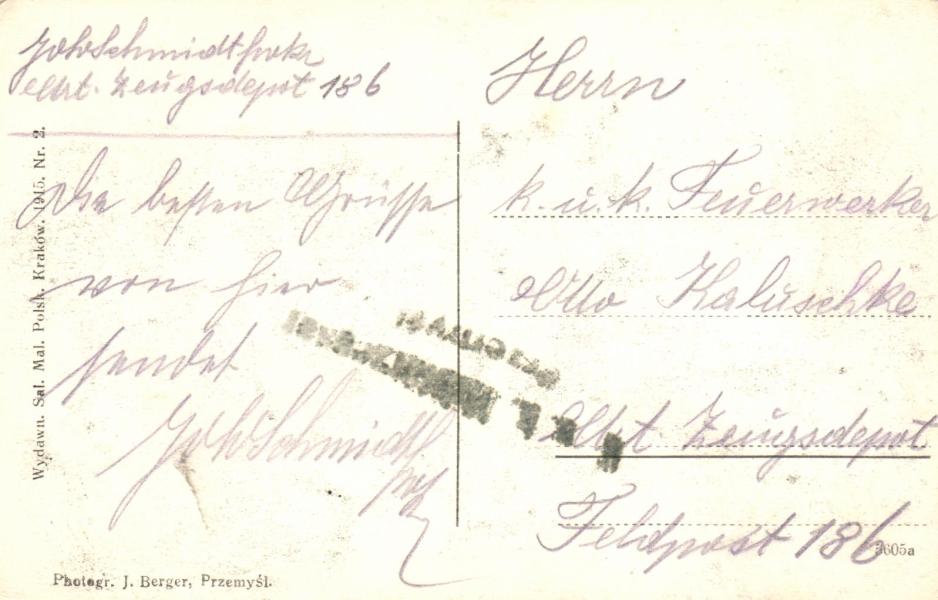 Schmidt
Art. Zeugsdepot 186
Die besten Grüsse
von hier
sendet
Schmidt
Herrn
k. u. k. Feuerwerker
Otto Kaluschke
Art. Zeugsdepot
Feldpost 186
Wydawn. Sal. Mal. Polsk. Kraków. 1915. Nr. 2.
Photogr. J. Berger, Przemyśl.
3605a